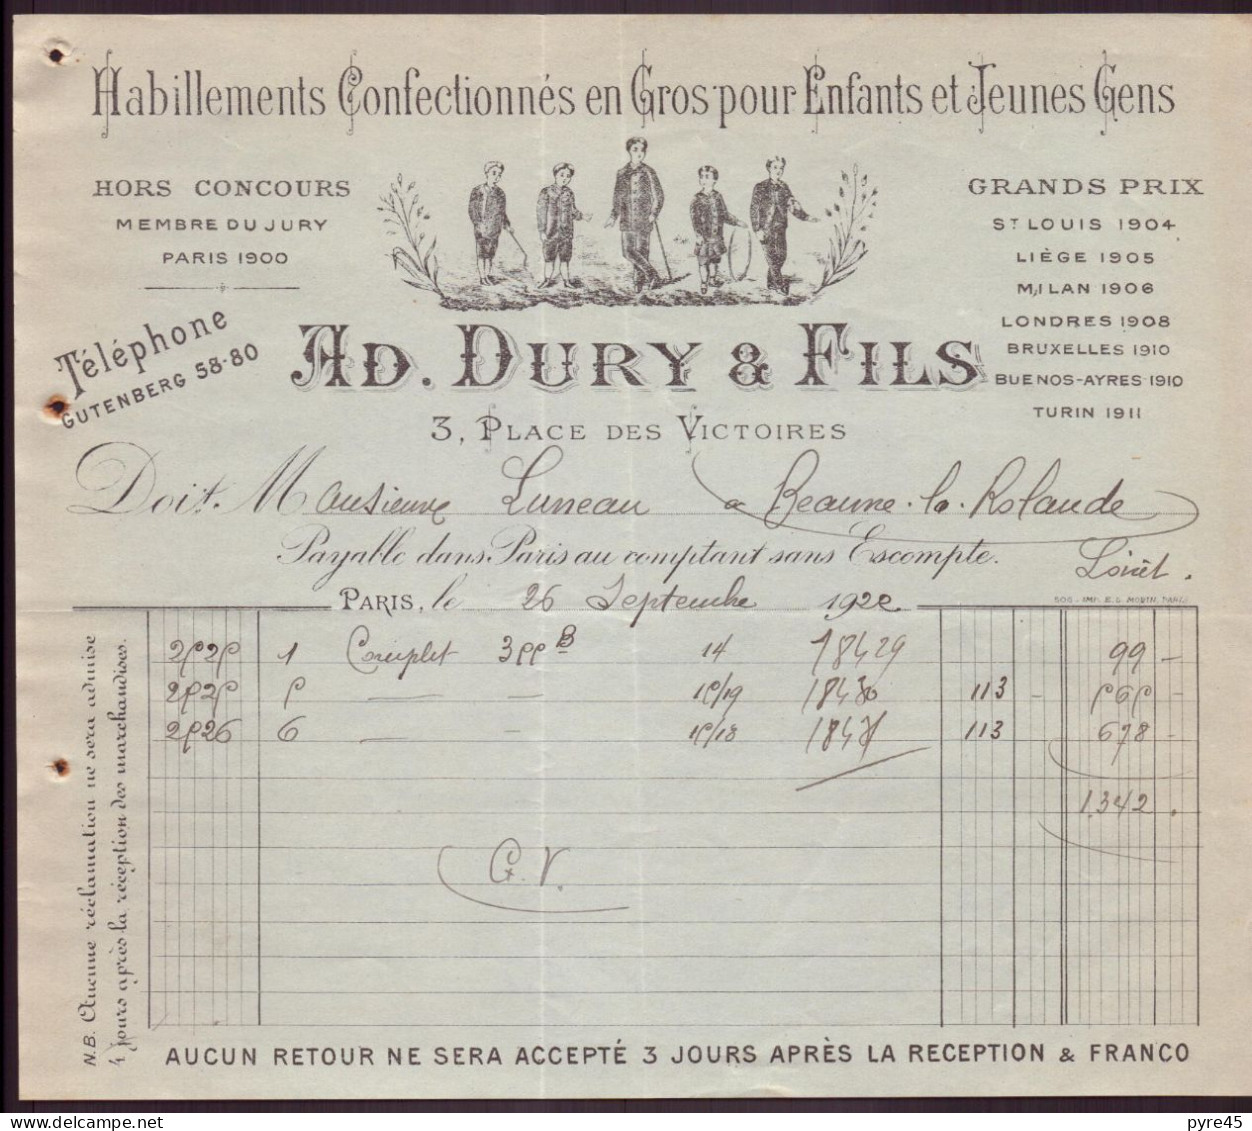 Habillements Confectionnés en Gros pour Enfants et Jeunes Gens
HORS CONCOURS
MEMBRE DU JURY
PARIS 1900
GRANDS PRIX
ST LOUIS 1904
LIÈGE 1905
MILAN 1906
LONDRES 1908
BRUXELLES 1910
BUENOS-AYRES 1910
TURIN 1911
Téléphone
GUTENBERG 58-80
AD. DURY & FILS
3, PLACE DES VICTOIRES
Doit M Luneau a Beaune-la-Rolande
Loiret.
Payable dans Paris au comptant sans Escompte.
PARIS, le 26 Septembre 1922
2525 1 Complet 355 B 14 18429 99 -
2525 5 — — 15/19 18430 113 - 565 -
2526 6 — — 15/18 113 678 -
1342.
G.V.
N.B. Aucune réclamation ne sera admise
4 jours après la réception des marchandises.
AUCUN RETOUR NE SERA ACCEPTÉ 3 JOURS APRÈS LA RECEPTION & FRANCO
pyre45